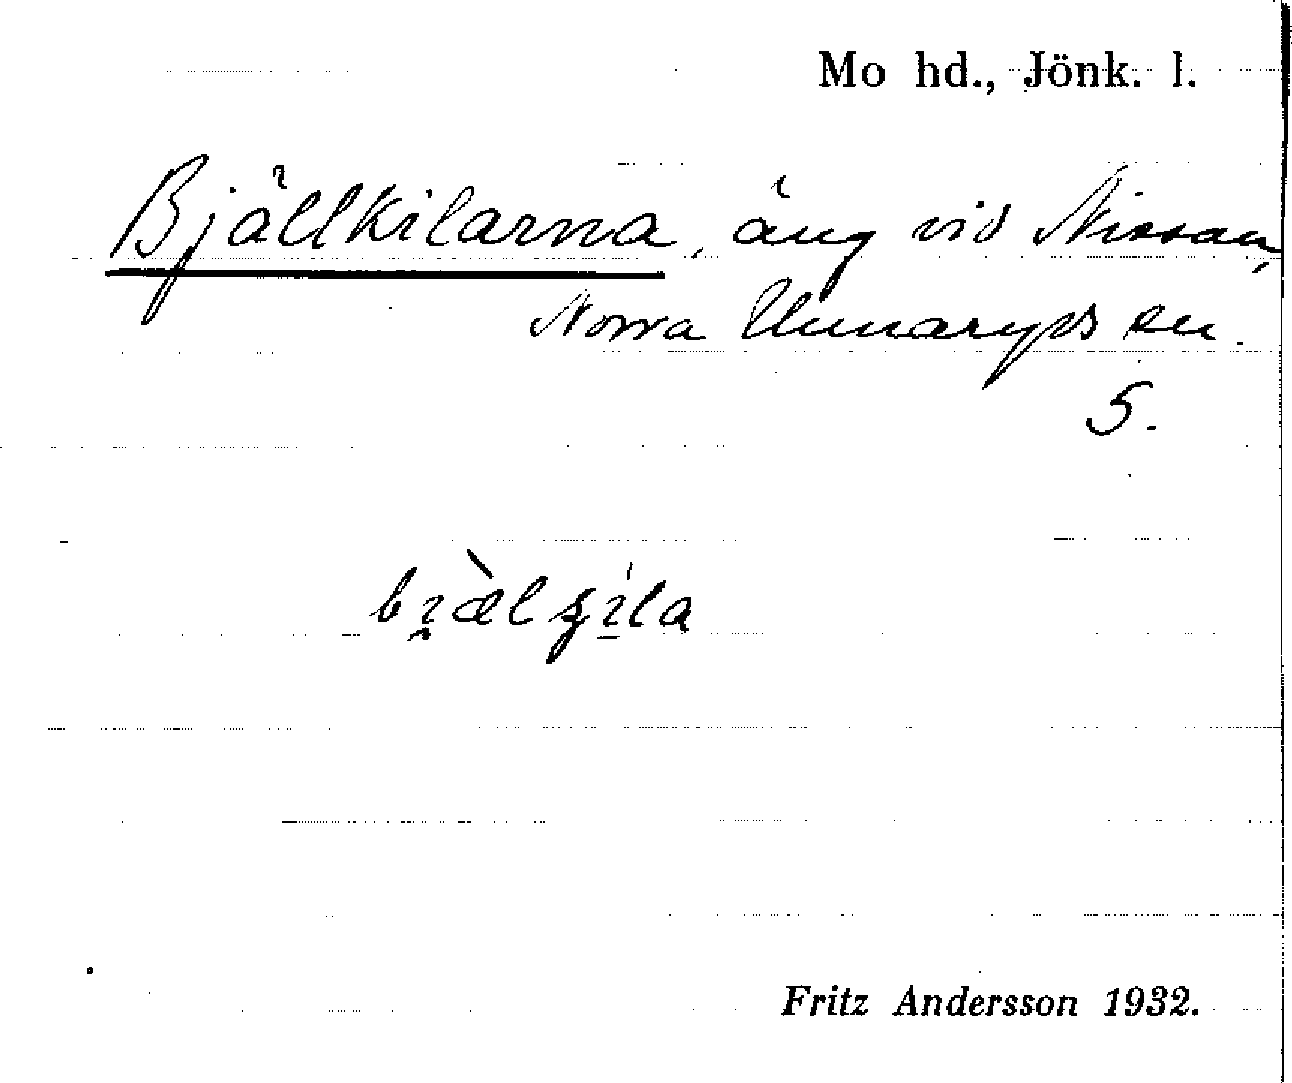 Mo hd., Jönk. l.
Bjällkilarna, äng vid Nissan,
Norra Unnaryds sn.
S.
Fritz Andersson 1932.